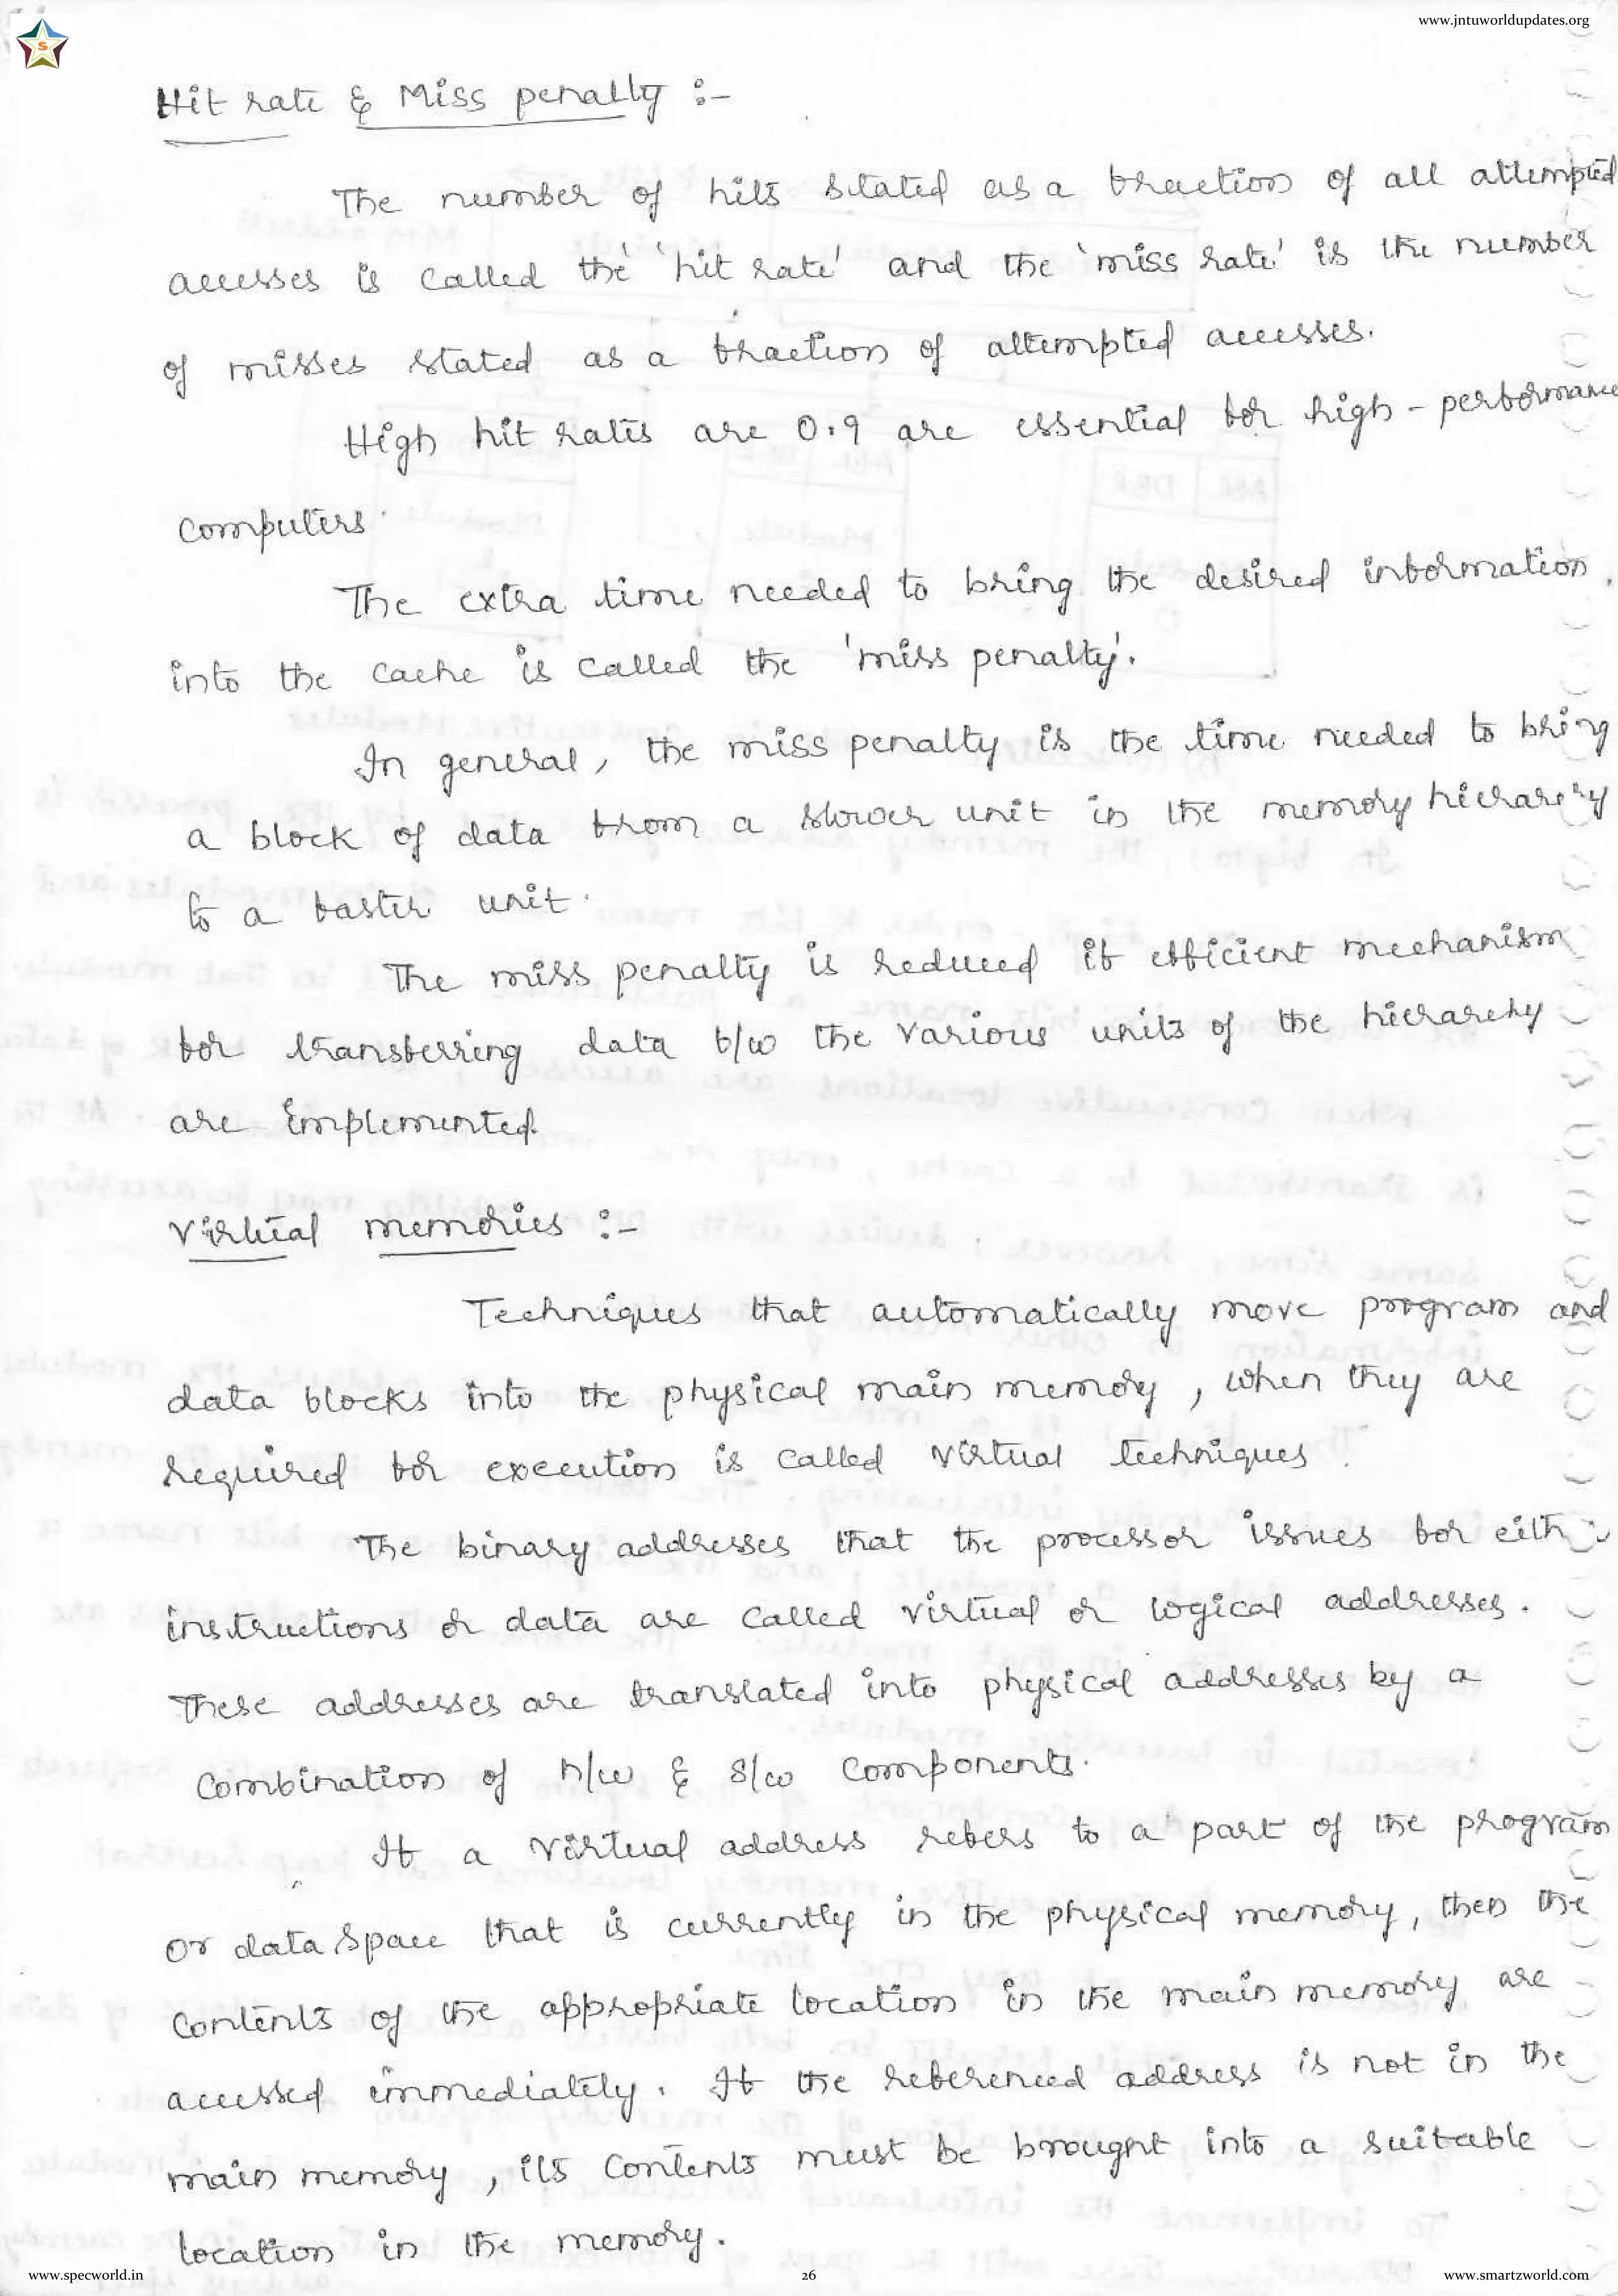 www.jntuworldupdates.org
S
Hit rate & Miss penalty :-
The number of hits stated as a fraction of all attempted
accesses is called the 'hit rate' and the 'miss rate' is the number
of misses stated as a fraction of attempted accesses.
High hit rates are 0.9 are essential for high-performance
computers.
The extra time needed to bring the desired information
into the cache is called the 'miss penalty'.
In general, the miss penalty is the time needed to bring
a block of data from a slower unit in the memory hierarchy
to a faster unit.
The miss penalty is reduced if efficient mechanism
for transferring data b/w the various units of the hierarchy
are implemented.
Virtual memories :-
Techniques that automatically move program and
data blocks into the physical main memory, when they are
required for execution is called virtual techniques.
The binary addresses that the processor issues for either
instructions or data are called virtual or logical addresses.
These addresses are translated into physical addresses by a
combination of h/w & s/w components.
If a virtual address refers to a part of the program
or data space that is currently in the physical memory, then the
contents of the appropriate location in the main memory are
accessed immediately. If the referenced address is not in the
main memory, its contents must be brought into a suitable
location in the memory.
www.specworld.in 26 www.smartzworld.com